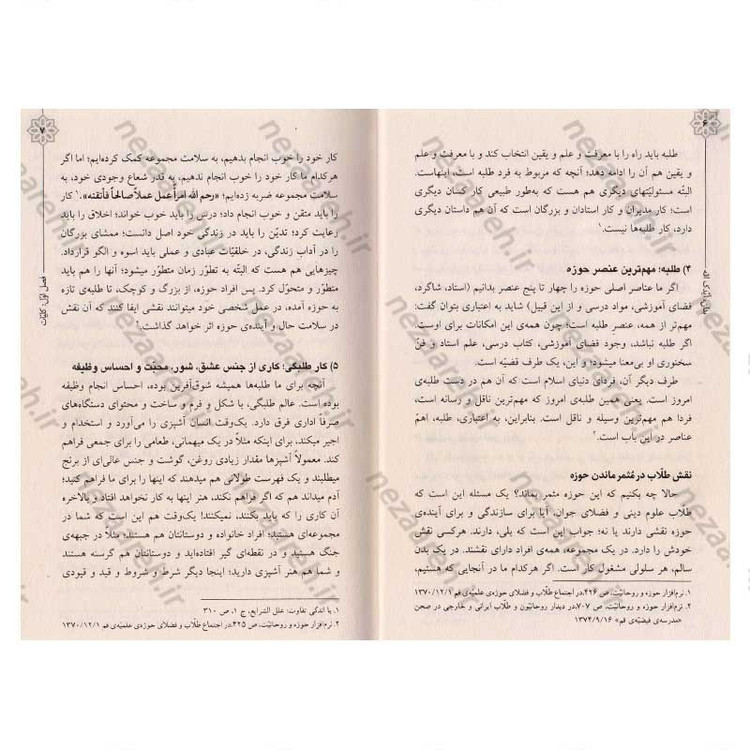 ۶
طلبه باید راه را با معرفت و علم و یقین انتخاب کند و با معرفت و علم
و یقین هم آن را ادامه دهد؛ آنچه که مربوط به فرد طلبه است، اینهاست.
البتّه مسئولیّتهای دیگری هم هست که به‌طور طبیعی کار کسان دیگری
است؛ کار مدیران و کار استادان و بزرگان است که آن هم داستان دیگری
دارد، کار طلبه‌ها نیست.۱
۴) طلبه؛ مهم‌ترین عنصر حوزه
اگر ما عناصر اصلی حوزه را چهار تا پنج عنصر بدانیم (استاد، شاگرد،
فضای آموزشی، مواد درسی و از این قبیل) شاید به اعتباری بتوان گفت:
مهم‌تر از همه، عنصر طلبه است؛ چون همه‌ی این امکانات برای اوست.
اگر طلبه نباشد، وجود فضای آموزشی، کتاب درسی، علم استاد و فنّ
سخنوری او بی‌معنا میشود؛ و این، یک طرف قضیّه است.
طرف دیگر آن، فردای دنیای اسلام است که آن هم در دست طلبه‌ی
امروز است. یعنی همین طلبه‌ی امروز که مهم‌ترین ناقل و رسانه است،
فردا هم مهم‌ترین وسیله و ناقل است. بنابراین، به اعتباری، طلبه، اهمّ
عناصر در این باب است.۲
نقش طلّاب در مُثمر ماندن حوزه
حالا چه بکنیم که این حوزه مثمر بماند؟ یک مسئله این است که
طلّاب علوم دینی و فضلای جوان، آیا برای سازندگی و برای آینده‌ی
حوزه نقشی دارند یا نه؛ جواب این است که بلی، دارند. هرکسی نقش
خودش را دارد. در یک مجموعه، همه‌ی افراد دارای نقشند. در یک بدن
سالم، هر سلولی مشغول کار است. اگر هرکدام ما در آنجایی که هستیم،
۱. نرم‌افزار حوزه و روحانیّت، ص ۴۲۶، در اجتماع طلّاب و فضلای حوزه‌ی علمیّه‌ی قم ۱۳۷۰/۱۲/۱
۲. نرم‌افزار حوزه و روحانیّت، ص ۷۰۷، در دیدار روحانیّون و طلّاب ایرانی و خارجی در صحن
«مدرسه‌ی فیضیّه‌ی قم» ۱۳۷۴/۹/۱۶
۷
فصل اوّل: کلیّات
کار خود را خوب انجام بدهیم، به سلامت مجموعه کمک کرده‌ایم؛ اما اگر
هرکدام ما کار خود را خوب انجام ندهیم، به قدر شعاع وجودی خود، به
سلامت مجموعه ضربه زده‌ایم؛ «رحم الله امرأ عمل عملاً صالحاً فأتقنه».۱ کار
را باید متقن و خوب انجام داد؛ درس را باید خوب خواند؛ اخلاق را باید
رعایت کرد؛ تدیّن را باید در زندگی خود اصل دانست؛ ممشای بزرگان
را در آداب زندگی، در خلقیّات عبادی و عملی باید اسوه و الگو قرارداد.
چیزهایی هم هست که البتّه به تطوّر زمان متطوّر میشود؛ آنها را هم باید
متطوّر و متحوّل کرد. پس افراد حوزه، از بزرگ و کوچک، تا طلبه‌ی تازه
به حوزه آمده، در عمل شخصی خود میتوانند نقشی ایفا کنند که آن نقش
در سلامت حال و آینده‌ی حوزه اثر خواهد گذاشت.۲
۵) کار طلبگی؛ کاری از جنس عشق، شور، محبّت و احساس وظیفه
آنچه برای ما طلبه‌ها همیشه شوق‌آفرین بوده، احساس انجام وظیفه
بوده است. عالم طلبگی، با شکل و فرم و ساخت و محتوای دستگاه‌های
صرفاً اداری فرق دارد. یک‌وقت انسان آشپزی را می‌آورد و استخدام و
اجیر میکند، برای اینکه مثلاً در یک میهمانی، طعامی را برای جمعی فراهم
کند. معمولاً آشپزها مقدار زیادی روغن، گوشت و جنس عالی‌ای از برنج
میطلبند و یک فهرست طولانی هم میدهند که اینها را برای ما فراهم کنید؛
آدم میداند هم که اگر فراهم نکند، هنر اینها به کار نخواهد افتاد و بالاخره
آن کاری را که باید بکنند، نمیکنند! یک‌وقت هم این است که شما در
مجموعه‌ای هستید؛ افراد خانواده و دوستانتان هم هستند؛ مثلاً در جبهه‌ی
جنگ هستید و در نقطه‌ای گیر افتاده‌اید و دوستانتان هم گرسنه هستند
و شما هم هنر آشپزی دارید؛ اینجا دیگر شرط و شروط و قید و قیودی
۱. با اندکی تفاوت: علل الشرایع، ج ۱، ص ۳۱۰
۲. نرم‌افزار حوزه و روحانیّت، ص ۴۲۵، در اجتماع طلّاب و فضلای حوزه‌ی علمیّه‌ی قم ۱۳۷۰/۱۲/۱
nezaareh.ir